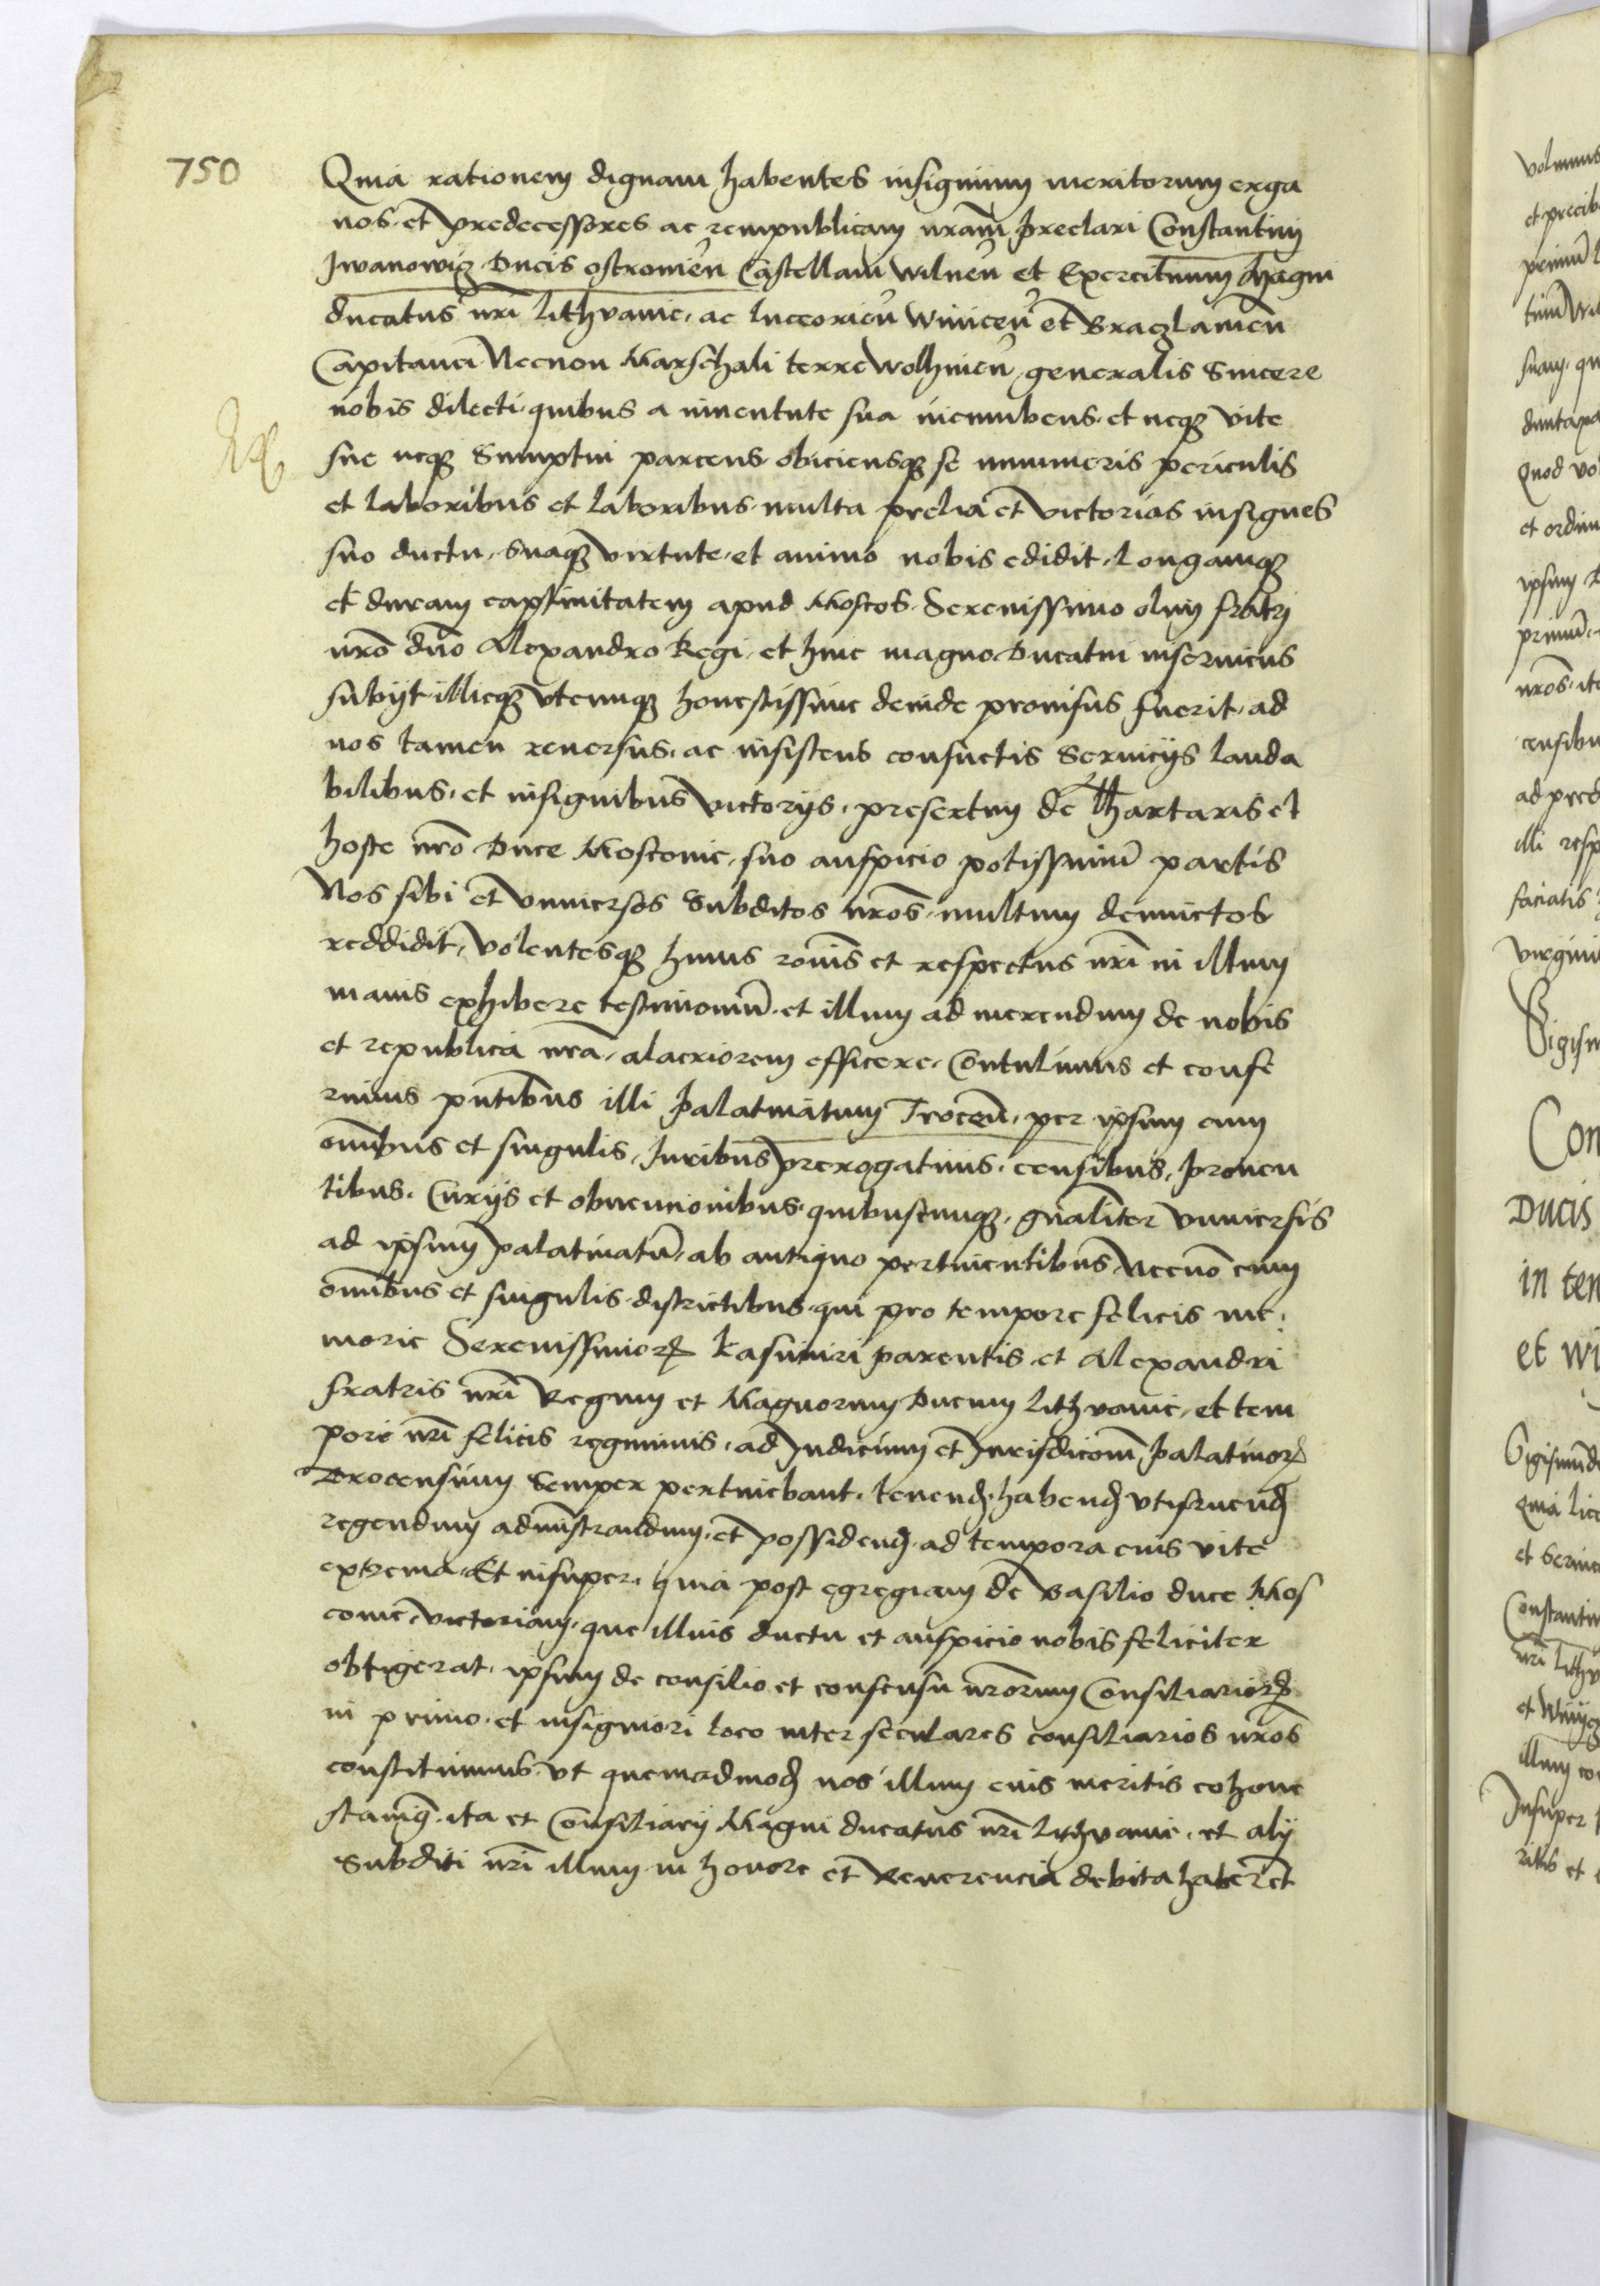 750
Quia rationem dignam habentes insignium meritorum erga
nos et predecessores ac rempublicam nrām preclari Constantini
Iwanowig Ducis ostrouieñ Castellani wilneñ et Exercituum Magni
ducatus nrī lithvanie, ac luceorieñ winiceñ et Braczlamieñ
Capitanei Necnon Marschali terre wolhinieñ generalis Sincere
nobis dilecti quibus a iuuentute sua incumbens et neqȝ vite
sue neqȝ Sumptui parcens obiciensqȝ se innumeris periculis
et laboribus et laboribus multa prelia et victorias insignes
suo ductu, suaqȝ virtute et animo nobis edidit, longamqȝ
et duram captiuitatem apud Moscos Serenissimo olim fratri
nrō dño Alexandro Regi et huic magno Ducatui inseruiens
subijt illicqȝ vtcumqȝ honestissime deinde prouisus fuerit, ad
nos tamen reuersus, ac insistens consuetis Seruicijs lauda
bilibus, et insignibus victorijs, presertim de Thartaris et
hoste nrō Duce Moscouie, suo auspicio potissimū partis
Nos sibi et vniuersos Subditos nrōs multum deuinctos
reddidit, volentesqȝ huius roīnis et respectus nrī in illum
maius exhibere testimoniū et illum ad merendum de nobis
et republica nrā alacriorem efficere, Contulimus et confe
rimus pñtibus illi palatinatum Troceñ, per ipsum cum
omībus et singulis, Iuribus prerogatiuis, censibus, prouen
tibus, Curijs et obuencionibus quibuscumqȝ, gñaliter vniuersis
ad ipsum palatinatū, ab antiquo pertinentibus Necnō cum
omībus et singulis districtibus qui pro tempore felicis me
morie Serenissimoꝝ kasimiri parentis et Alexandri
fratris nrī Regum et Magnorum Ducum lithvanie, et tem
pore nrī felicis regiminis, ad Iudicium et Iurisdicōnem palatinoꝝ
Trocensium Semper pertinebant, tenenđ habenđ vtifruenđ
regendum administrandum et possidenđ ad tempora eius vite
extrema, Et insuper, quia post egregiam de Basilio duce Mos
couie victoriam, que illius ductu et auspicio nobis feliciter
obtigerat, ipsum de consilio et consensu nrōrum Consiliarioꝝ
in primo et insigniori loco inter seculares consiliarios nrōs
constituimus vt quemadmođ nos illum eius meritis cohone
stamꝰ ita et Consiliarij Magni ducatus nrī lithvanie, et alij
Subditi nrī illum in honore et Reuerencia debita haberēt